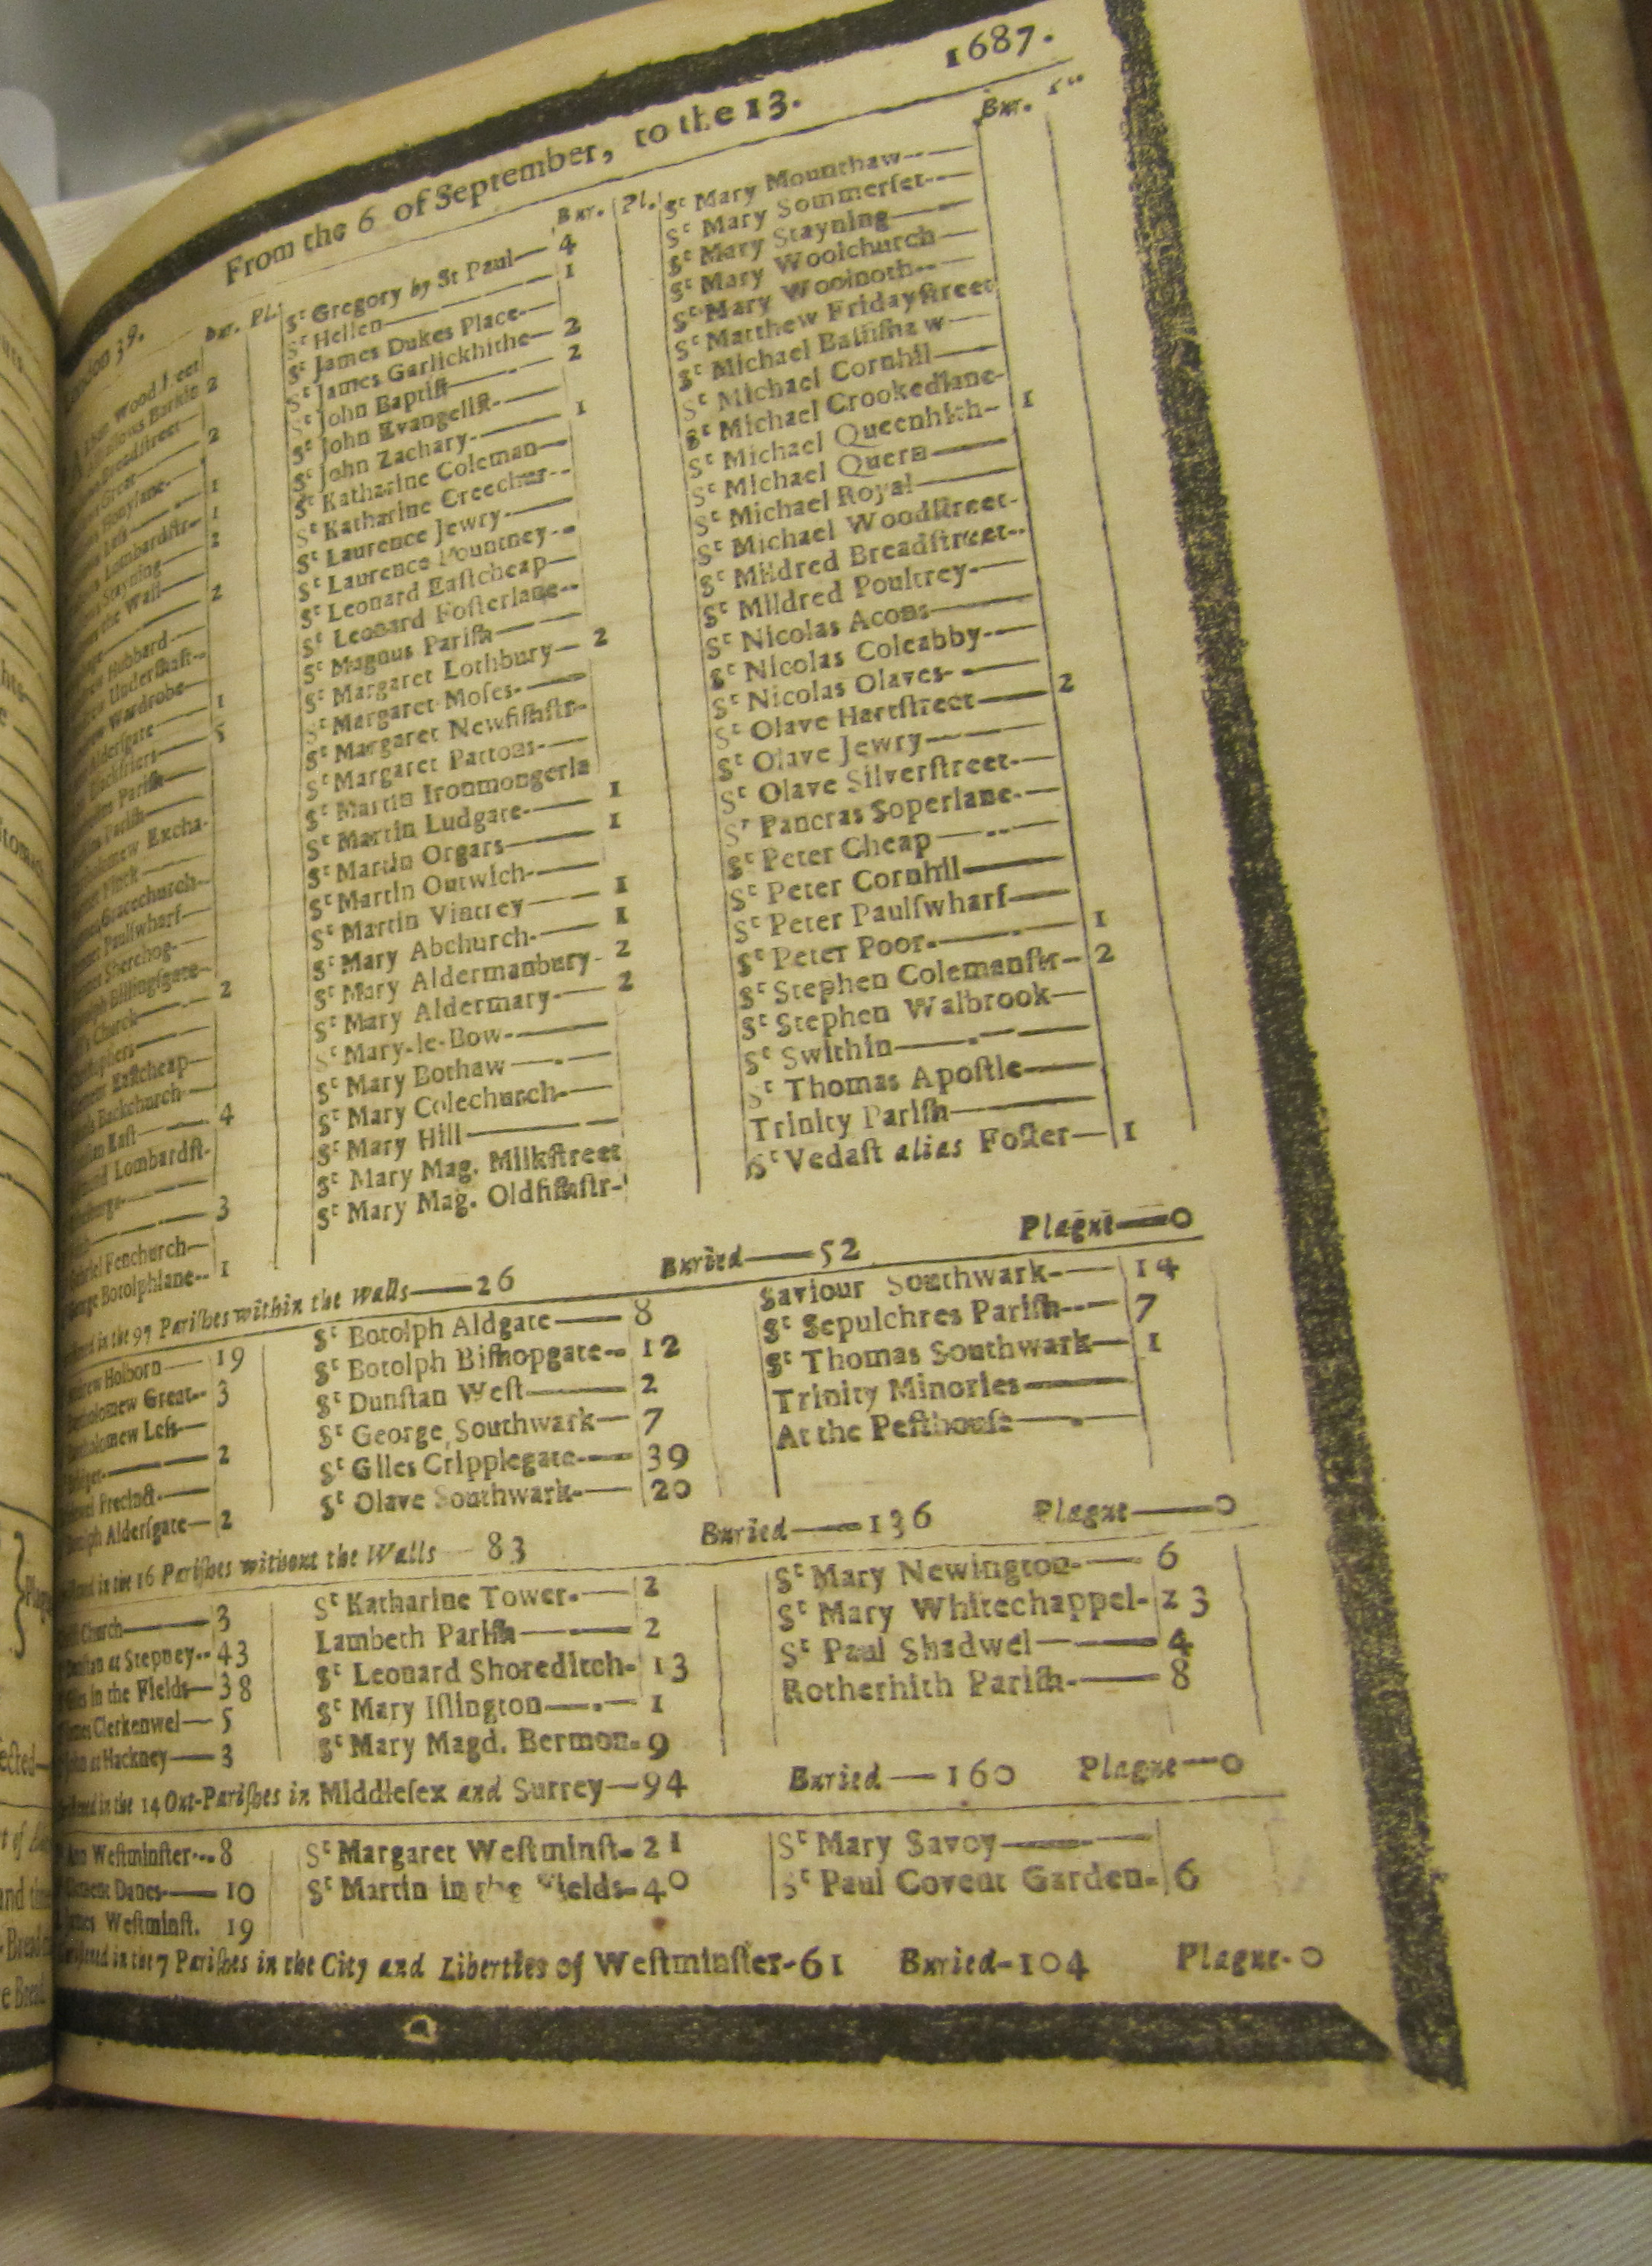 1687.
From the 6 of September, to the 13.
London 39.
Bur. Pl.
Wood
Barkin 2
Breadstreet
Great 2
Honylane
Less 1
Lombardstr 1
Stayning 2
the Wall
2
Hubbard
Undershaft
Wardrobe
Aldersgate 1
Blackfriers 5
Parish
Parish
Excha.
Finck
Gracechurch
Paulswharf
Sherehog
Billingsgate
Church 2
Eastcheap
Backchurch
East 4
Lombardst.
3
Gabriel Fenchurch
George Botolphlane 1
Bur. Pl.
Sᵗ Gregory by St Paul 4
Sᵗ Hellen 1
Sᵗ James Dukes Place
Sᵗ James Garlickhithe 2
Sᵗ John Baptist 2
Sᵗ John Evangelist
Sᵗ John Zachary 1
Sᵗ Katharine Coleman
Sᵗ Katharine Creechur
Sᵗ Laurence Jewry
Sᵗ Laurence Pountney
Sᵗ Leonard Eastcheap
Sᵗ Leonard Fosterlane
Sᵗ Magnus Parish
Sᵗ Margaret Lothbury 2
Sᵗ Margaret Moses
Sᵗ Margaret Newfishstr
Sᵗ Margaret Pattons
Sᵗ Martin Ironmongerla
Sᵗ Martin Ludgate 1
Sᵗ Martin Orgars 1
Sᵗ Martin Outwich
Sᵗ Martin Vintrey 1
Sᵗ Mary Abchurch 1
Sᵗ Mary Aldermanbury 2
Sᵗ Mary Aldermary 2
Sᵗ Mary-le-Bow
Sᵗ Mary Bothaw
Sᵗ Mary Colechurch
Sᵗ Mary Hill
Sᵗ Mary Mag. Milkstreet
Sᵗ Mary Mag. Oldfishstr
Bur.
Sᵗ Mary Mounthaw
Sᵗ Mary Sommerset
Sᵗ Mary Stayning
Sᵗ Mary Woolchurch
Sᵗ Mary Woolnoth
Sᵗ Matthew Fridaystreet
Sᵗ Michael Bassishaw
Sᵗ Michael Cornhil
Sᵗ Michael Crookedlane
Sᵗ Michael Queenhith 1
Sᵗ Michael Quern
Sᵗ Michael Royal
Sᵗ Michael Woodstreet
Sᵗ Mildred Breadstreet
Sᵗ Mildred Poultrey
Sᵗ Nicolas Acons
Sᵗ Nicolas Coleabby
Sᵗ Nicolas Olaves
Sᵗ Olave Hartstreet 2
Sᵗ Olave Jewry
Sᵗ Olave Silverstreet
Sᵗ Pancras Soperlane
Sᵗ Peter Cheap
Sᵗ Peter Cornhil
Sᵗ Peter Paulswharf
Sᵗ Peter Poor 1
Sᵗ Stephen Colemanstr 2
Sᵗ Stephen Walbrook
Sᵗ Swithin
Sᵗ Thomas Apostle
Trinity Parish
Sᵗ Vedast alias Foster 1
in the 97 Parishes within the Walls—26 Buried—52 Plague—0
Andrew Holborn 19
Bartholomew Great 3
Bartholomew Less
Bridget 2
Precinct
Botolph Aldersgate 2
Sᵗ Botolph Aldgate 8
Sᵗ Botolph Bishopgate 12
Sᵗ Dunstan West 2
Sᵗ George Southwark 7
Sᵗ Giles Cripplegate 39
Sᵗ Olave Southwark 20
Saviour Southwark 14
Sᵗ Sepulchres Parish 7
Sᵗ Thomas Southwark 1
Trinity Minories
At the Pesthouse
in the 16 Parishes without the Walls 83 Buried—136 Plague—0
Church 3
Dunstan at Stepney 43
Giles in the Fields 38
James Clerkenwel 5
John at Hackney 3
Sᵗ Katharine Tower 2
Lambeth Parish 2
Sᵗ Leonard Shoreditch 13
Sᵗ Mary Islington 1
Sᵗ Mary Magd. Bermon. 9
Sᵗ Mary Newington 6
Sᵗ Mary Whitechappel 23
Sᵗ Paul Shadwel 4
Rotherhith Parish 8
in the 14 Out-Parishes in Middlesex and Surrey—94 Buried—160 Plague—0
Ann Westminster 8
Clement Danes 10
James Westminst. 19
Sᵗ Margaret Westminst 21
Sᵗ Martin in the Fields 40
Sᵗ Mary Savoy
Sᵗ Paul Covent Garden 6
in the 7 Parishes in the City and Liberties of Westminster-61 Buried-104 Plague-0